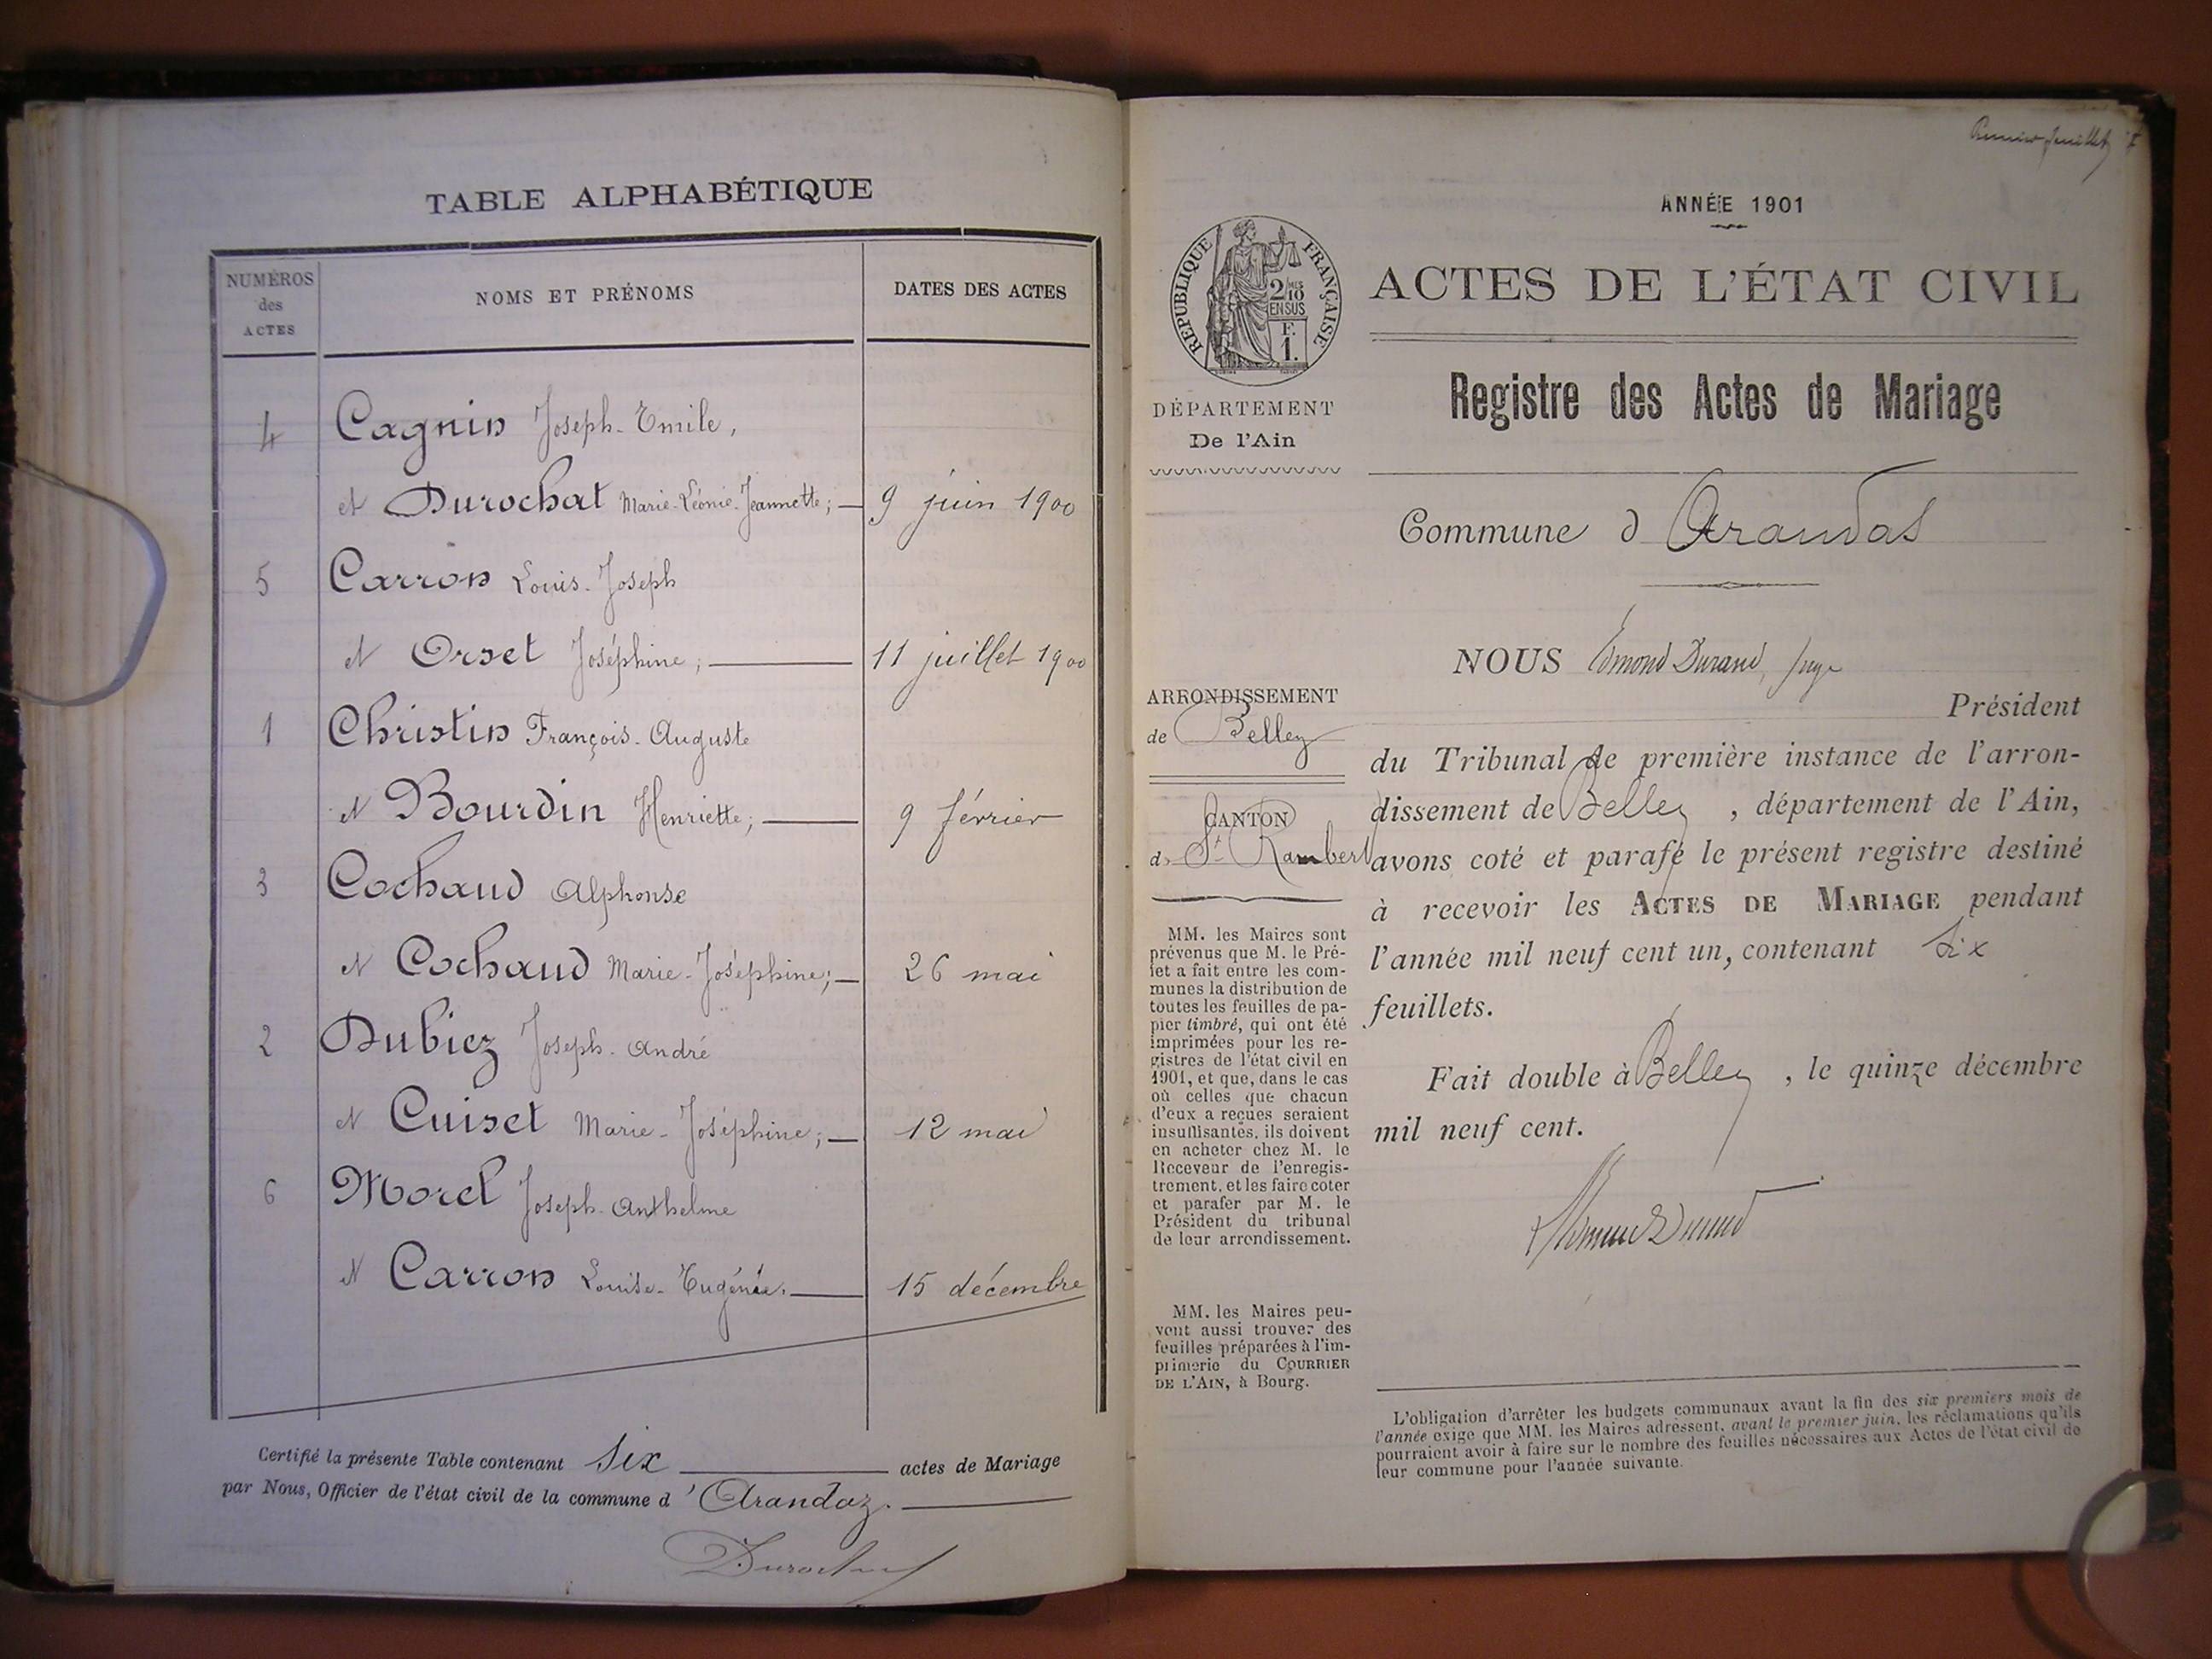 TABLE ALPHABÉTIQUE
NUMÉROS
des
ACTES
NOMS ET PRÉNOMS
DATES DES ACTES
4 Cagnin Joseph-Emile,
et Durochat Marie-Léonie-Jeannette; 9 juin 1900
5 Carron Louis-Joseph
et Orset Joséphine; 11 juillet 1900
1 Christin François-Auguste
et Bourdin Henriette; 9 février
3 Cochaud Alphonse
et Cochaud Marie-Joséphine; 26 mai
2 Dubiez Joseph-André
et Cuiset Marie-Joséphine; 12 mai
6 Morel Joseph-Anthelme
et Carron Louise-Eugénie. 15 décembre
Certifié la présente Table contenant six actes de Mariage
par Nous, Officier de l'état civil de la commune d'Arandaz.
Premier feuillet
ANNÉE 1901
RÉPUBLIQUE FRANÇAISE
2/10
EN SUS
F.
1.
ACTES DE L'ÉTAT CIVIL
DÉPARTEMENT
De l'Ain
Registre des Actes de Mariage
Commune d Arandas
NOUS Edmond Durand, Juge
Président
du Tribunal de première instance de l'arron-
dissement de Belley, département de l'Ain,
avons coté et parafé le présent registre destiné
à recevoir les ACTES DE MARIAGE pendant
l'année mil neuf cent un, contenant six
feuillets.
Fait double à Belley, le quinze décembre
mil neuf cent.
ARRONDISSEMENT
de Belley
CANTON
de St Rambert
MM. les Maires sont
prévenus que M. le Pré-
fet a fait entre les com-
munes la distribution de
toutes les feuilles de pa-
pier timbré, qui ont été
imprimées pour les re-
gistres de l'état civil en
1901, et que, dans le cas
où celles que chacun
d'eux a reçues seraient
insuffisantes, ils doivent
en acheter chez M. le
Receveur de l'enregis-
trement, et les faire coter
et parafer par M. le
Président du tribunal
de leur arrondissement.
MM. les Maires peu-
vent aussi trouver des
feuilles préparées à l'im-
primerie du COURRIER
DE L'AIN, à Bourg.
L'obligation d'arrêter les budgets communaux avant la fin des six premiers mois de
l'année exige que MM. les Maires adressent, avant le premier juin, les réclamations qu'ils
pourraient avoir à faire sur le nombre des feuilles nécessaires aux Actes de l'état civil de
leur commune pour l'année suivante.